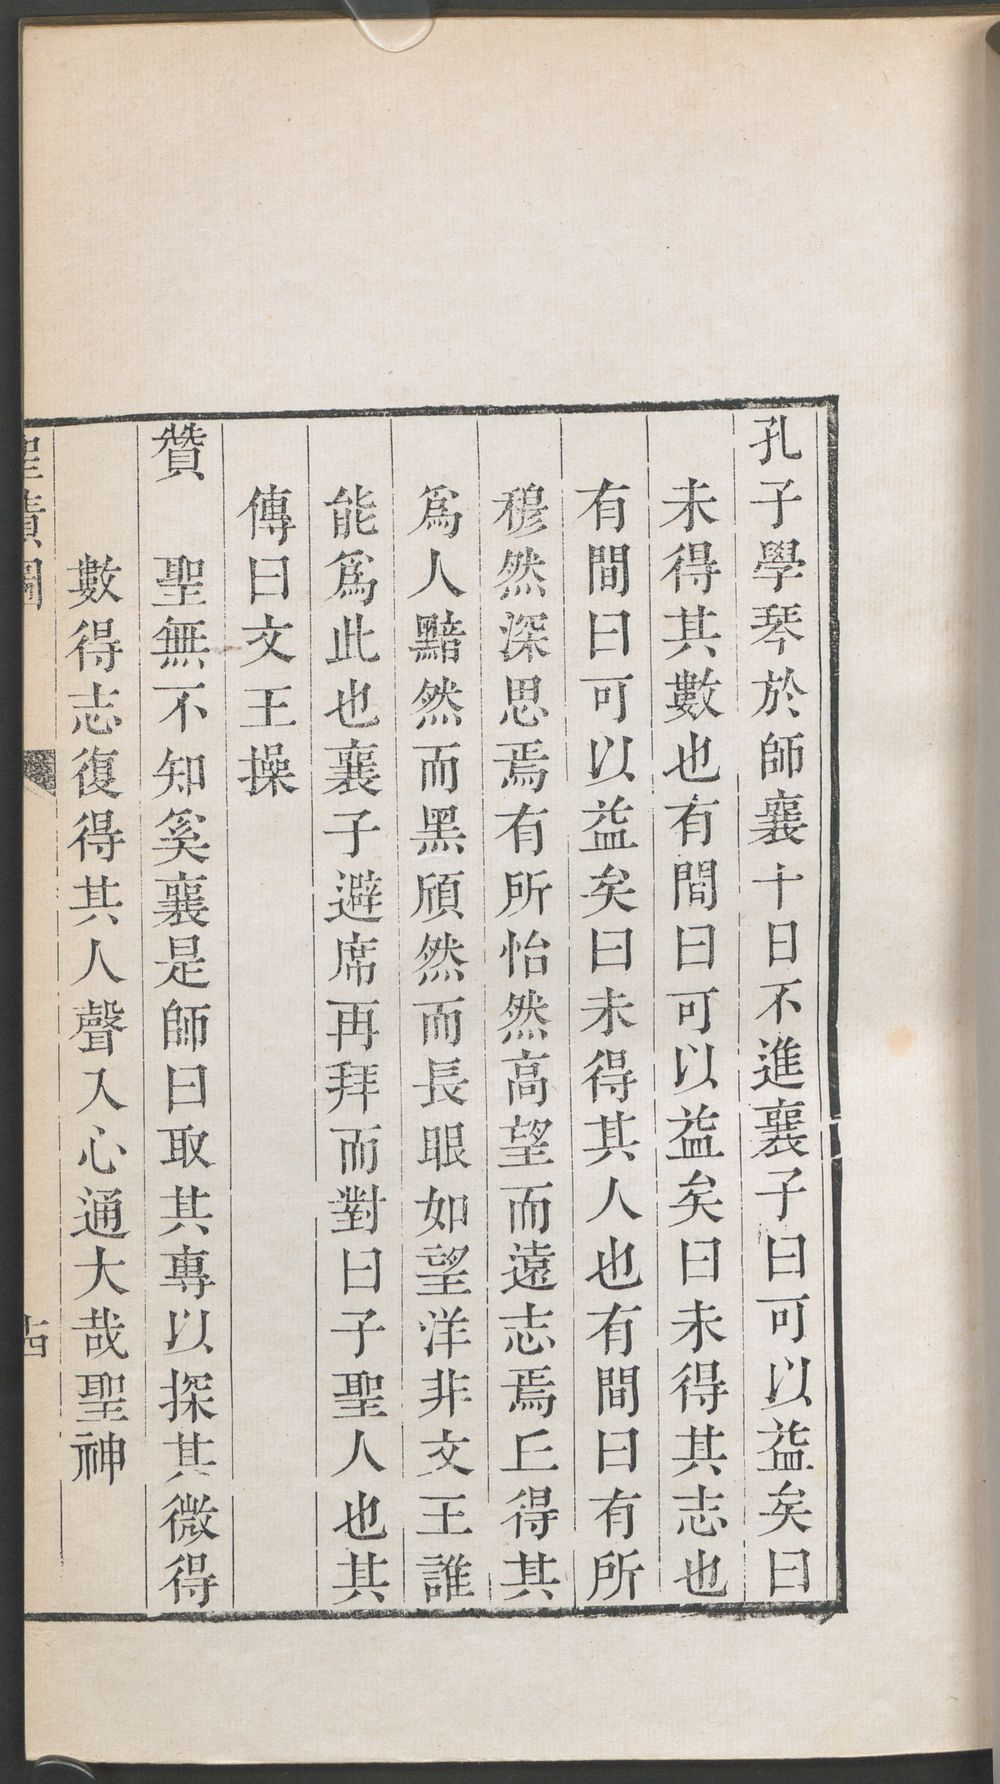 孔子學琴於師襄十日不進襄子曰可以益矣曰
未得其數也有間曰可以益矣曰未得其志也
有間曰可以益矣曰未得其人也有間曰有所
穆然深思焉有所怡然高望而遠志焉丘得其
爲人黯然而黑頎然而長眼如望洋非文王誰
能爲此也襄子避席再拜而對曰子聖人也其
傳曰文王操
贊　聖無不知奚襄是師曰取其專以探其微得
數得志復得其人聲入心通大哉聖神
聖蹟圖